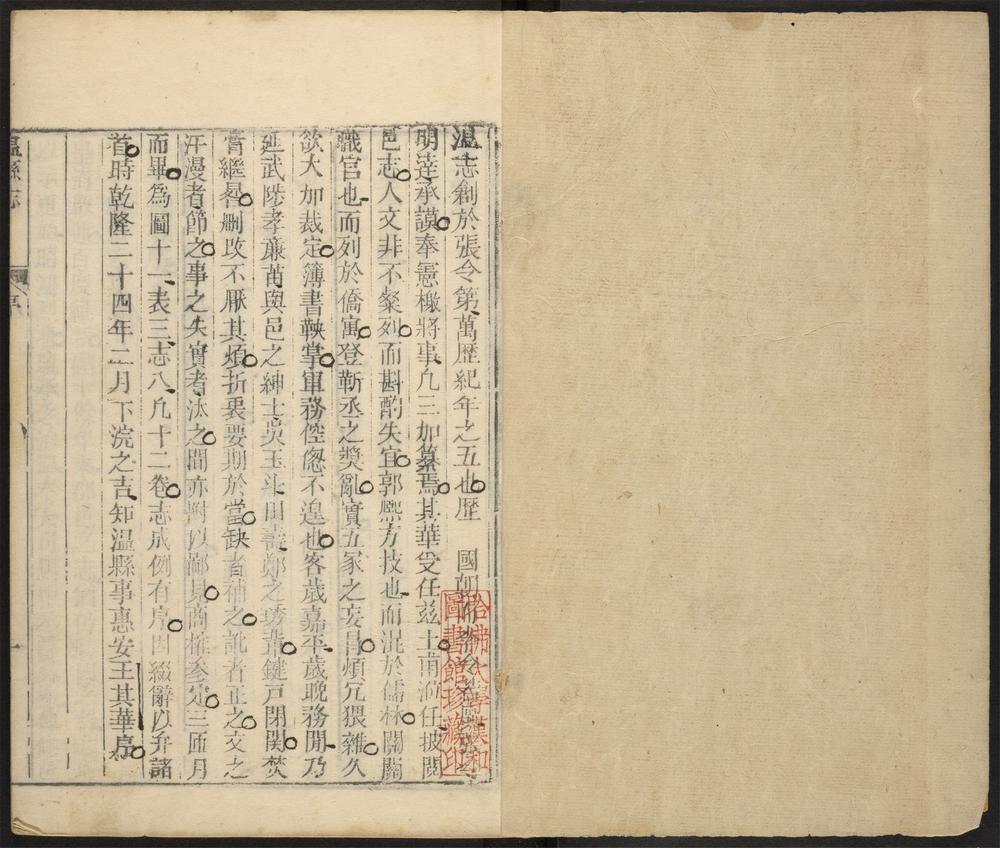 溫志創於張令第萬歷紀年之五也歷　國朝
明達承謨奉憲檄將事凡三加纂焉其華受任茲土甫涖任披閱
邑志人文非不粲列而斟酌失宜郭熈方技也而混於儒林關關
職官也而列於僑寓登靳丞之奬亂實五冢之妄昌煩冗猥雜久
欲大加裁定簿書鞅掌軍務倥傯不遑也客歲嘉平歲晚務閒乃
延武陟孝廉苗與邑之紳士吳玉斗田壽鄭之琇輩鍵戸閉関焚
膏繼晷刪攺不厭其煩折衷要期於當缺者補之訛者正之文之
汗漫者節之事之失實者汰之間亦附以鄙見商榷叅定三匝月
而畢爲圖十一表三志八凡十二卷志成例有序因綴辭以弁諸
首時乾隆二十四年二月下浣之吉知溫縣事惠安王其華序
溫縣志
序
一
哈佛大學漢和
圖書館珍藏印